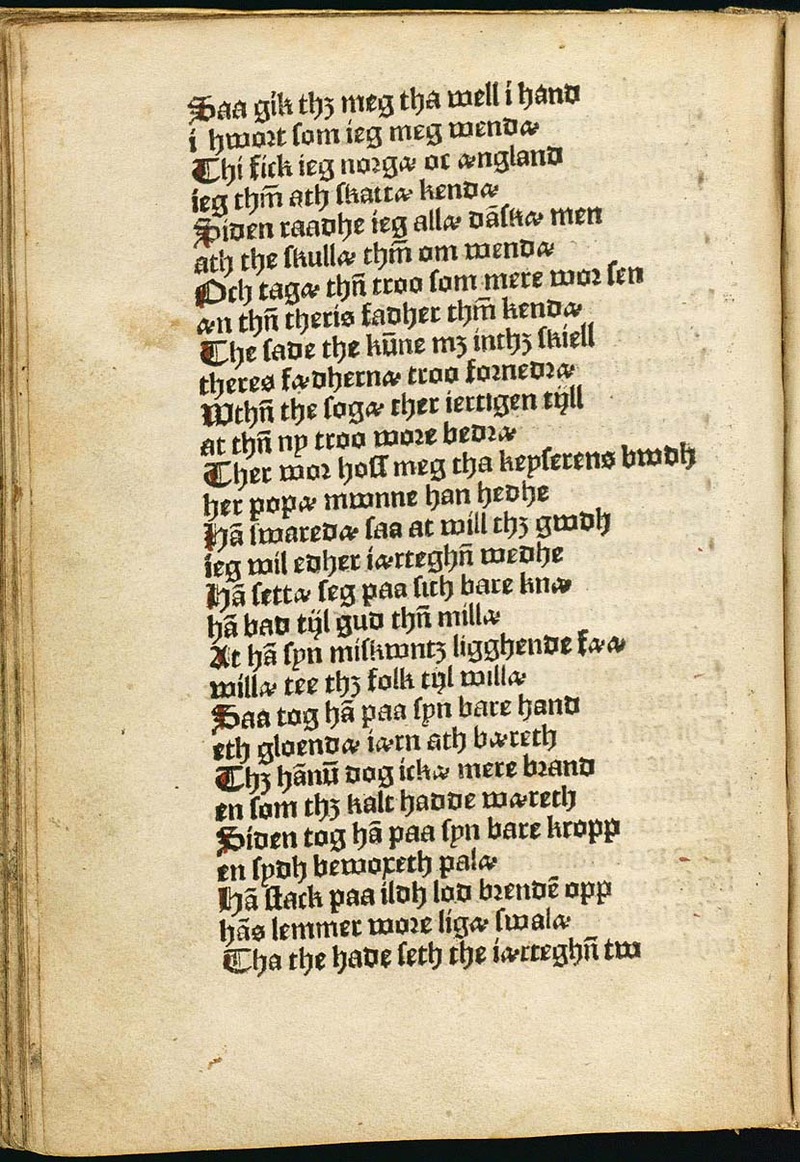 Saa gik thꝫ meg tha well i hand
i hwort som ieg meg wendæ
Thi fick ieg norgæ oc ængland
ieg thm̄ ath skattæ kendæ
Siden raadhe ieg allæ dāskæ men
ath the skullæ thm̄ om wendæ
Och tagæ thn̄ troo som mere wor sen
æn thn̄ theris fadher thm̄ kendæ
The sade the kūne mꝫ inthꝫ skiell
theres fædhernæ troo fornedræ
Wthn̄ the sogæ ther iertigen tijll
at thn̄ ny troo wore bedræ
Ther wor hoss meg tha keyserens bwdh
her popæ mwnne han hedhe
Hā swaredæ saa at will thꝫ gwdh
ieg wil edher iærteghn̄ wedhe
Hā settæ seg paa sith bare knæ
hā bad tijl gud thn̄ millæ
At hā syn miskwntꝫ ligghende fææ
willæ tee thꝫ folk tijl willæ
Saa tog hā paa syn bare hand
eth gloendæ iærn ath bæreth
Thꝫ hānū dog ickæ mere brand
en som thꝫ kalt hadde wæreth
Siden tog hā paa syn bare kropp
en sydh bewoxeth palæ
Hā stack paa ildh lod brendē opp
hās lemmer wore ligæ swalæ
Tha the hade seth the iærteghn̄ tw